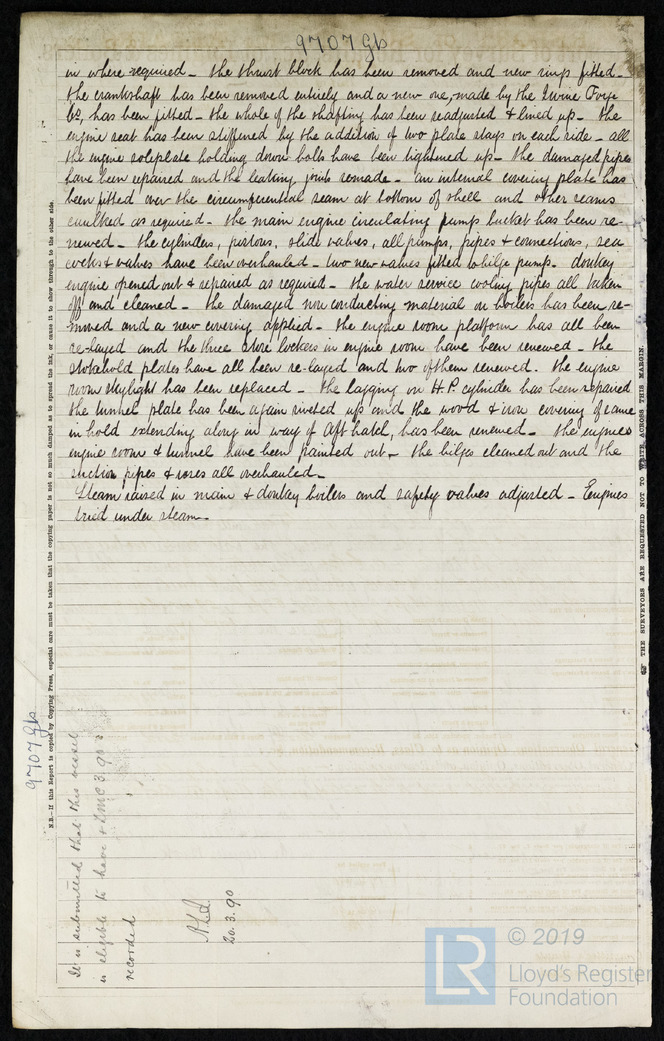 9707 Gls
in where required - the thrust block has been removed and new rings fitted -
the crankshaft has been removed entirely and a new one, made by the Irvine Forge
Co, has been fitted - the whole of the shafting has been readjusted & lined up - the
engine seat has been stiffened by the addition of two plate stays on each side - all
the engine soleplate holding down bolts have been tightened up - the damaged pipes
have been repaired and the leaking joints remade - an internal covering plate has
been fitted over the circumferential seam at bottom of shell and other seams
caulked as required - the main engine circulating pump bucket has been re-
newed - the cylinders, pistons, slide valves, all pumps, pipes & connections, sea
cocks & valves have been overhauled - two new valves fitted to bilge pump - donkey
engine opened out & repaired as required - the water service cooling pipes all taken
off and cleaned - the damaged non conducting material on boilers has been re-
moved and a new covering applied - the engine room platform has all been
re-layed and the three store lockers in engine room have been renewed - the
stokehold plates have all been re-layed and two of them renewed. the engine
room skylight has been replaced - the lagging on H.P. cylinder has been repaired
the tunnel plate has been again riveted up and the wood & iron covering of same
in hold extending along in way of Aft hatch, has been renewed - the engines
engine room & tunnel have been painted out - the bilges cleaned out and the
suction pipes & roses all overhauled -
Steam raised in main & donkey boilers and safety valves adjusted - Engines
tried under steam -
N.B.—If this Report is copied by Copying Press, especial care must be taken that the copying paper is not so much damped as to spread the ink, or cause it to show through to the other side.
THE SURVEYORS ARE REQUESTED NOT TO WRITE ACROSS THIS MARGIN.
9707 Gls
It is submitted that this vessel
is eligible to have + LMC 3.90
recorded
20.3.90
LR
© 2019
Lloyd's Register
Foundation